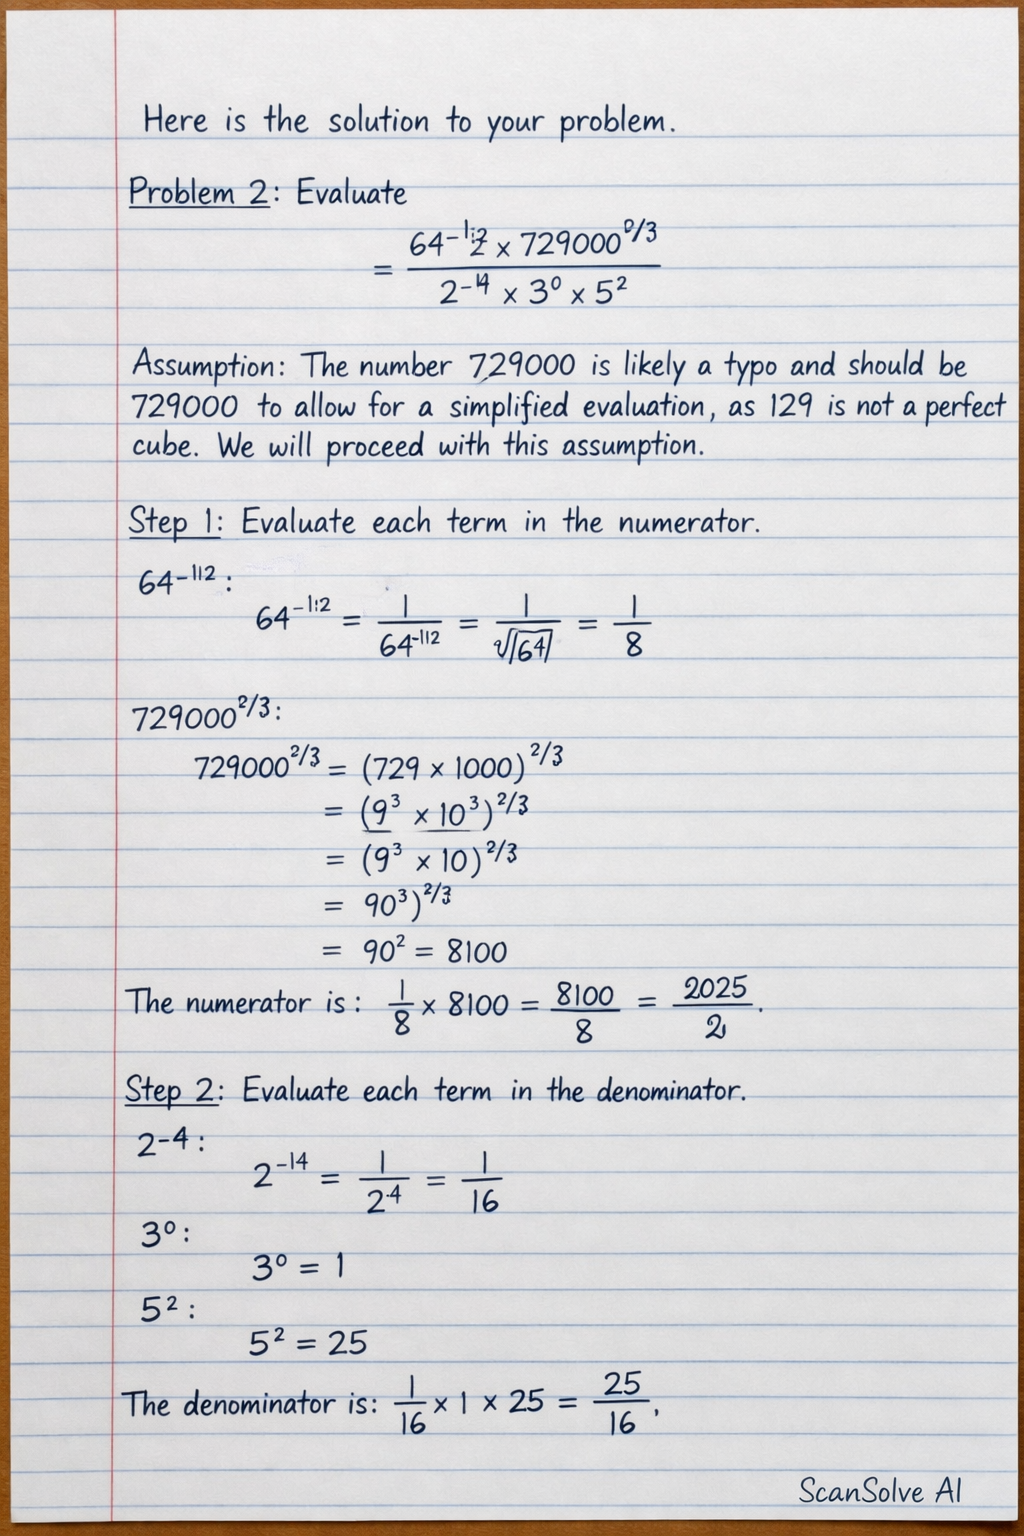 Here is the solution to your problem.
Problem 2: Evaluate
= (64^-1:2 × 729000^0/3) / (2^-14 × 3^0 × 5^2)
Assumption: The number 729000 is likely a typo and should be
729000 to allow for a simplified evaluation, as 129 is not a perfect
cube. We will proceed with this assumption.
Step 1: Evaluate each term in the numerator.
64^-112 :
64^-1:2 = 1/64^-112 = 1/√|64| = 1/8
729000^2/3:
729000^2/3 = (729 × 1000)^2/3
= (9^3 × 10^3)^2/3
= (9^3 × 10)^2/3
= 90^3)^2/3
= 90^2 = 8100
The numerator is: 1/8 × 8100 = 8100/8 = 2025/2.
Step 2: Evaluate each term in the denominator.
2^-4 :
2^-14 = 1/2^-4 = 1/16
3^0:
3^0 = 1
5^2 :
5^2 = 25
The denominator is: 1/16 × 1 × 25 = 25/16,
ScanSolve AI